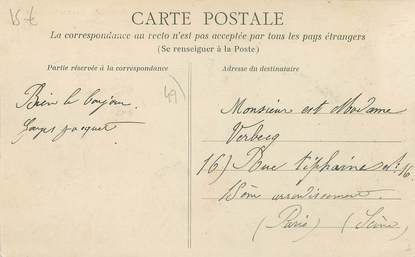 15€
CARTE POSTALE
La correspondance au recto n'est pas acceptée par tous les pays étrangers
(Se renseigner à la Poste)
Partie réservée à la correspondance
Adresse du destinataire
Bien le bonjour
49)
Monsieur est Madame
Verbecq
16) Rue tiphaine
15ème arrondissement.
(Paris) (Seine)